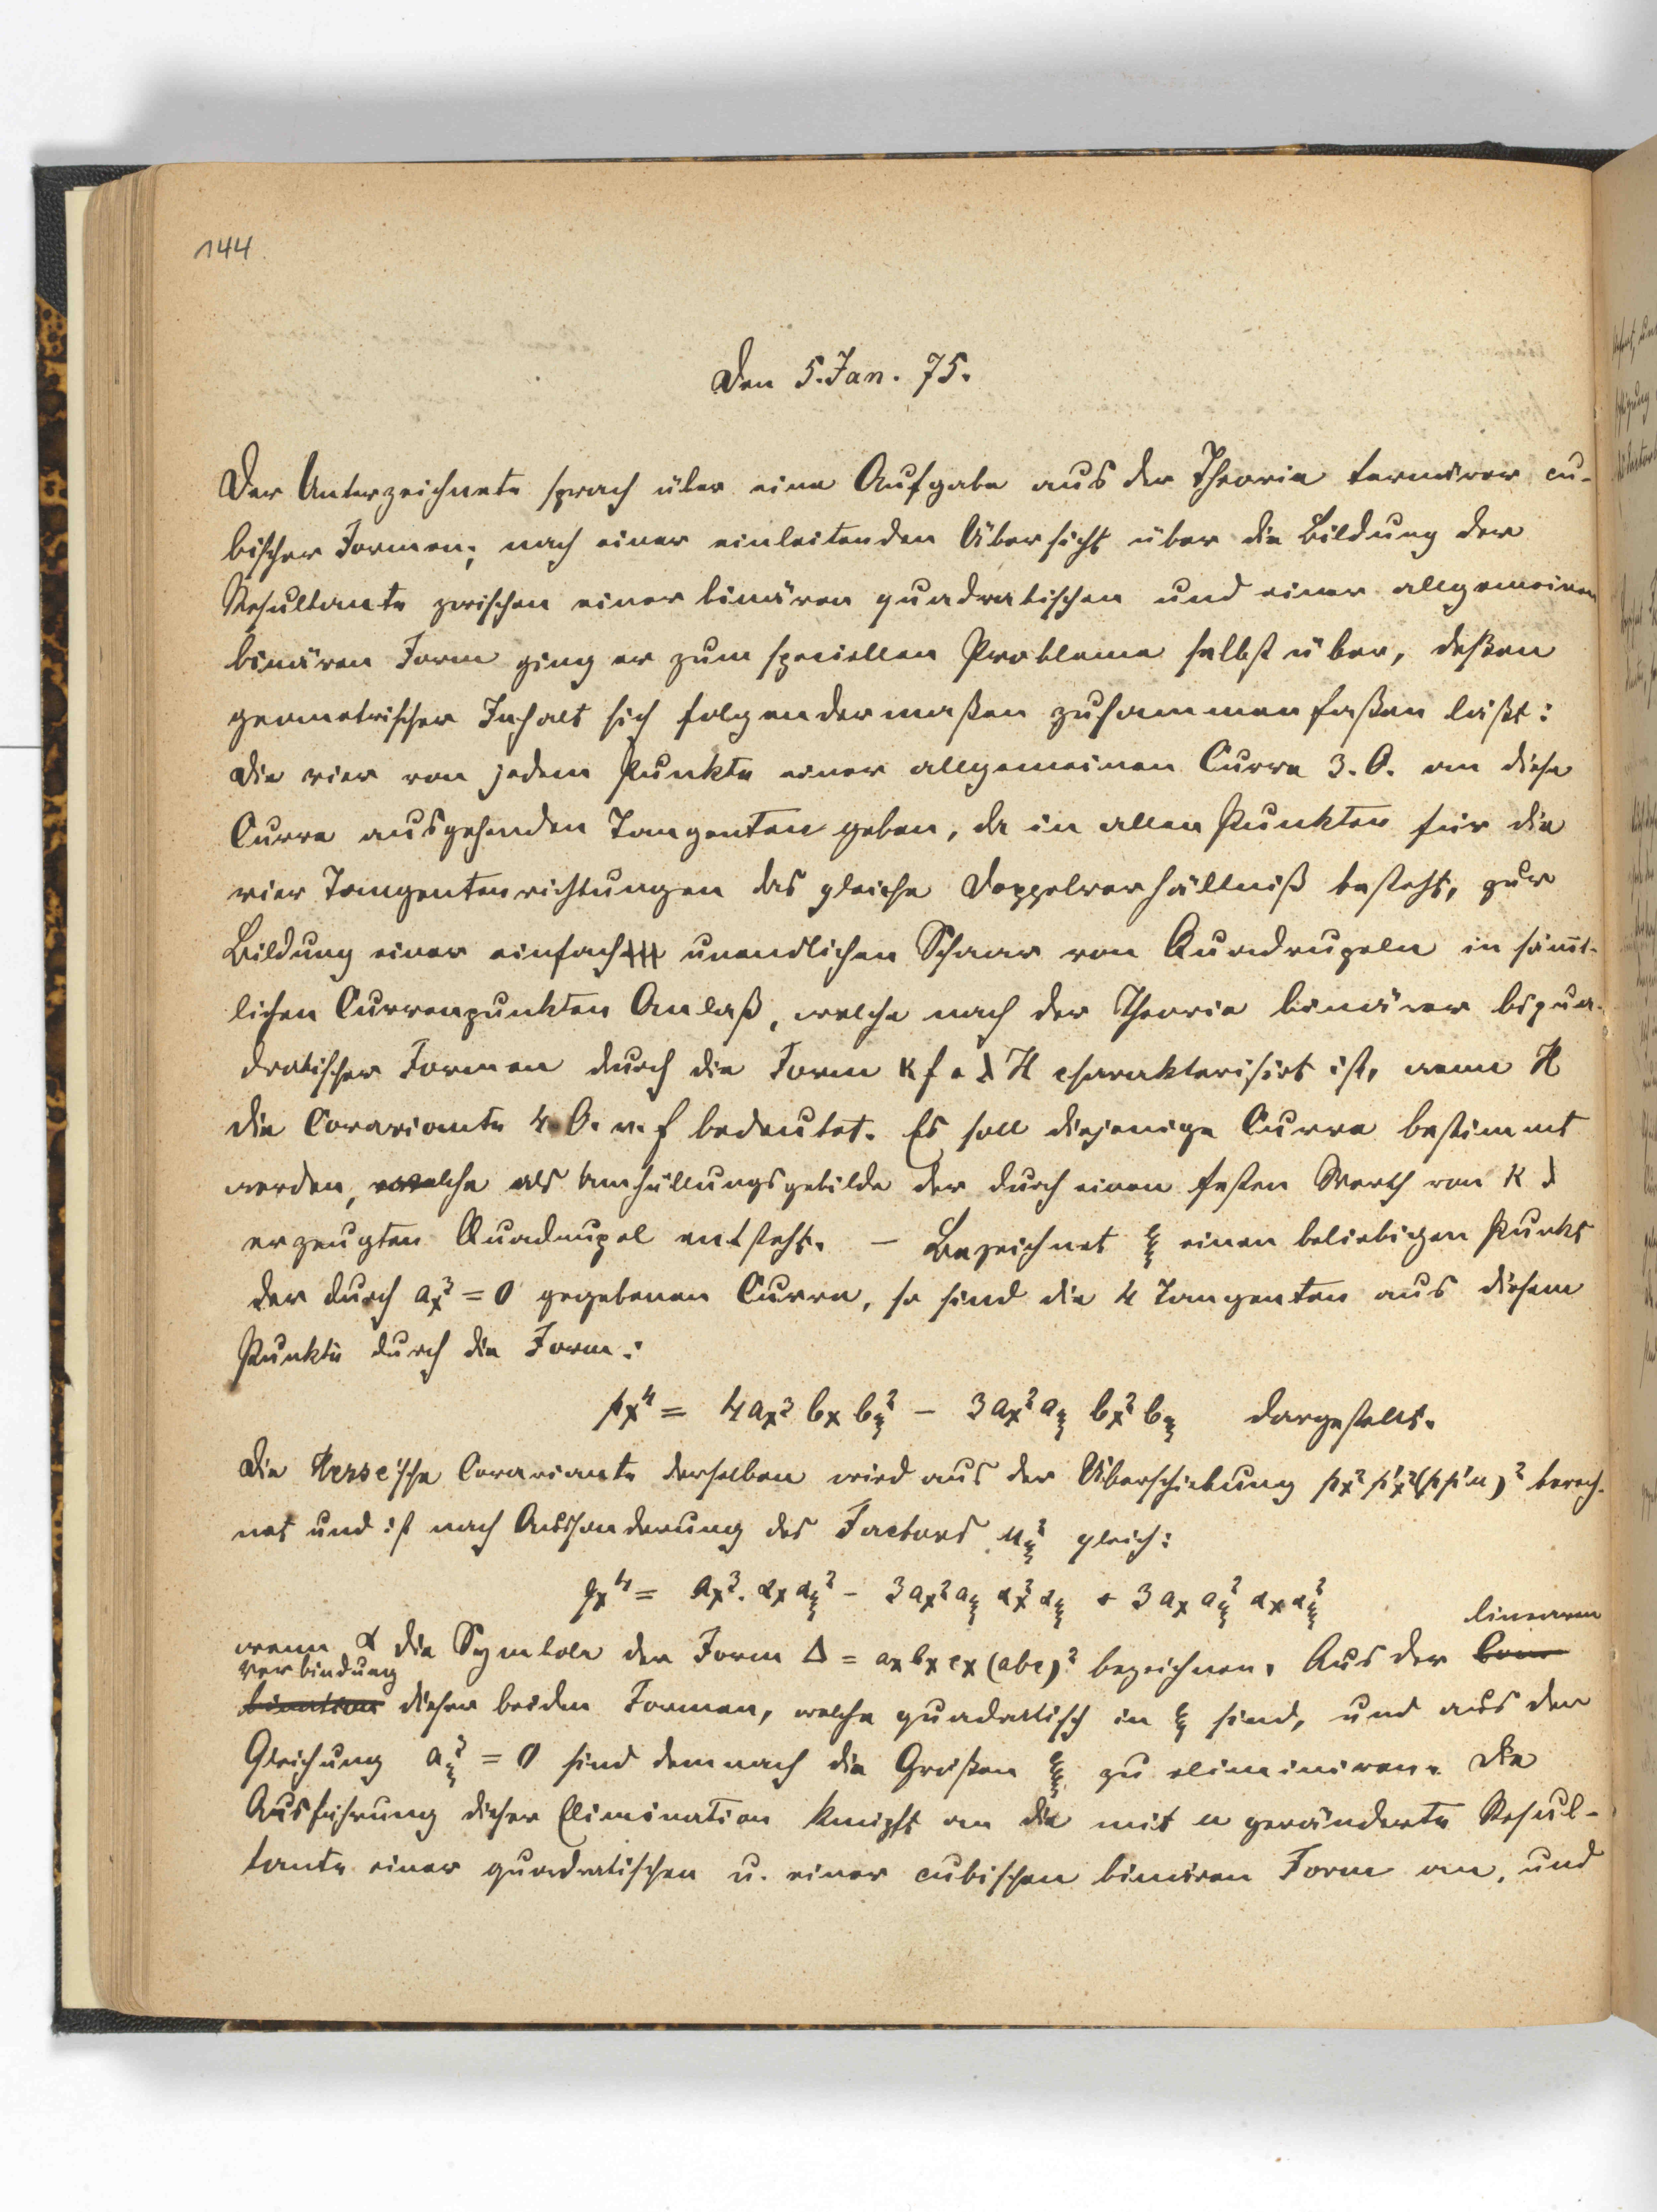 144
Den 5. Jan. 75.
Der Unterzeichnete sprach über eine Aufgabe aus der Theorie ternärer cu-
bischer Formen; nach einer einleitenden Übersicht über die Bildung der
Resultante zwischen einer binären quadratischen und einer allgemeinen
binären Form ging er zum speciellen Probleme selbst über, deßen
geometrischer Inhalt sich folgendermaßen zusammenfaßen läßt:
Die vier von jedem Punkte einer allgemeinen Curve 3. O. an diese
Curve ausgehenden Tangenten geben, da in allen Punkten für die
vier Tangentenrichtungen das gleiche Doppelverhältniß besteht, zur
Bildung einer einfach unendlichen Schaar von Quadrupeln in sämt-
lichen Curvenpunkten Anlaß, welche nach der Theorie binärer biqua-
dratischer Formen durch die Form κf + λH charakterisirt ist, wenn H
die Covariante 4. O. v. f bedeutet. Es soll diejenige Curve bestimmt
werden, welche als Umhüllungsgebilde der durch einen festen Werth von κ λ
erzeugten Quadrupel entsteht. – Bezeichnet ξ einen beliebigen Punkt
der durch aₓ³ = 0 gegebenen Curve, so sind die 4 Tangenten aus diesem
Punkte durch die Form:
pₓ⁴ = 4aₓ³ bₓ b_ξ² – 3aₓ² a_ξ bₓ² b_ξ dargestellt.
Die Hesse'sche Covariante derselben wird aus der Überschiebung pₓ² p'ₓ² (pp'u)² berech-
net und ist nach Absonderung des Factors u_ξ² gleich:
qₓ⁴ = aₓ³. αₓ α_ξ² – 3aₓ² a_ξ αₓ² α_ξ + 3aₓ a_ξ² αₓ α_ξ²
linearen
wenn α die Symbole der Form Δ = aₓ bₓ cₓ (abc)² bezeichnen. Aus der Com-
verbindung
bination dieser beiden Formen, welche quadratisch in ξ sind, und aus der
Gleichung a_ξ³ = 0 sind demnach die Größen ξ zu eliminiren. Die
Ausführung dieser Elimination knüpft an die mit u geränderte Resul-
tante einer quadratischen u. einer cubischen binären Form an, und